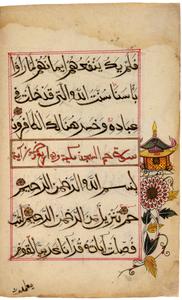 فلم يك ينفعهم ايمانهم لما راوا
باسنا سنت الله التي قد خلت في
عباده وخسر هنالك الكافرون
سورة حم السجدة
بسم الله الرحمن الرحيم
حم تنزيل من الرحمن الرحيم كتاب
فصلت اياته قرانا عربيا لقوم
يعلمون